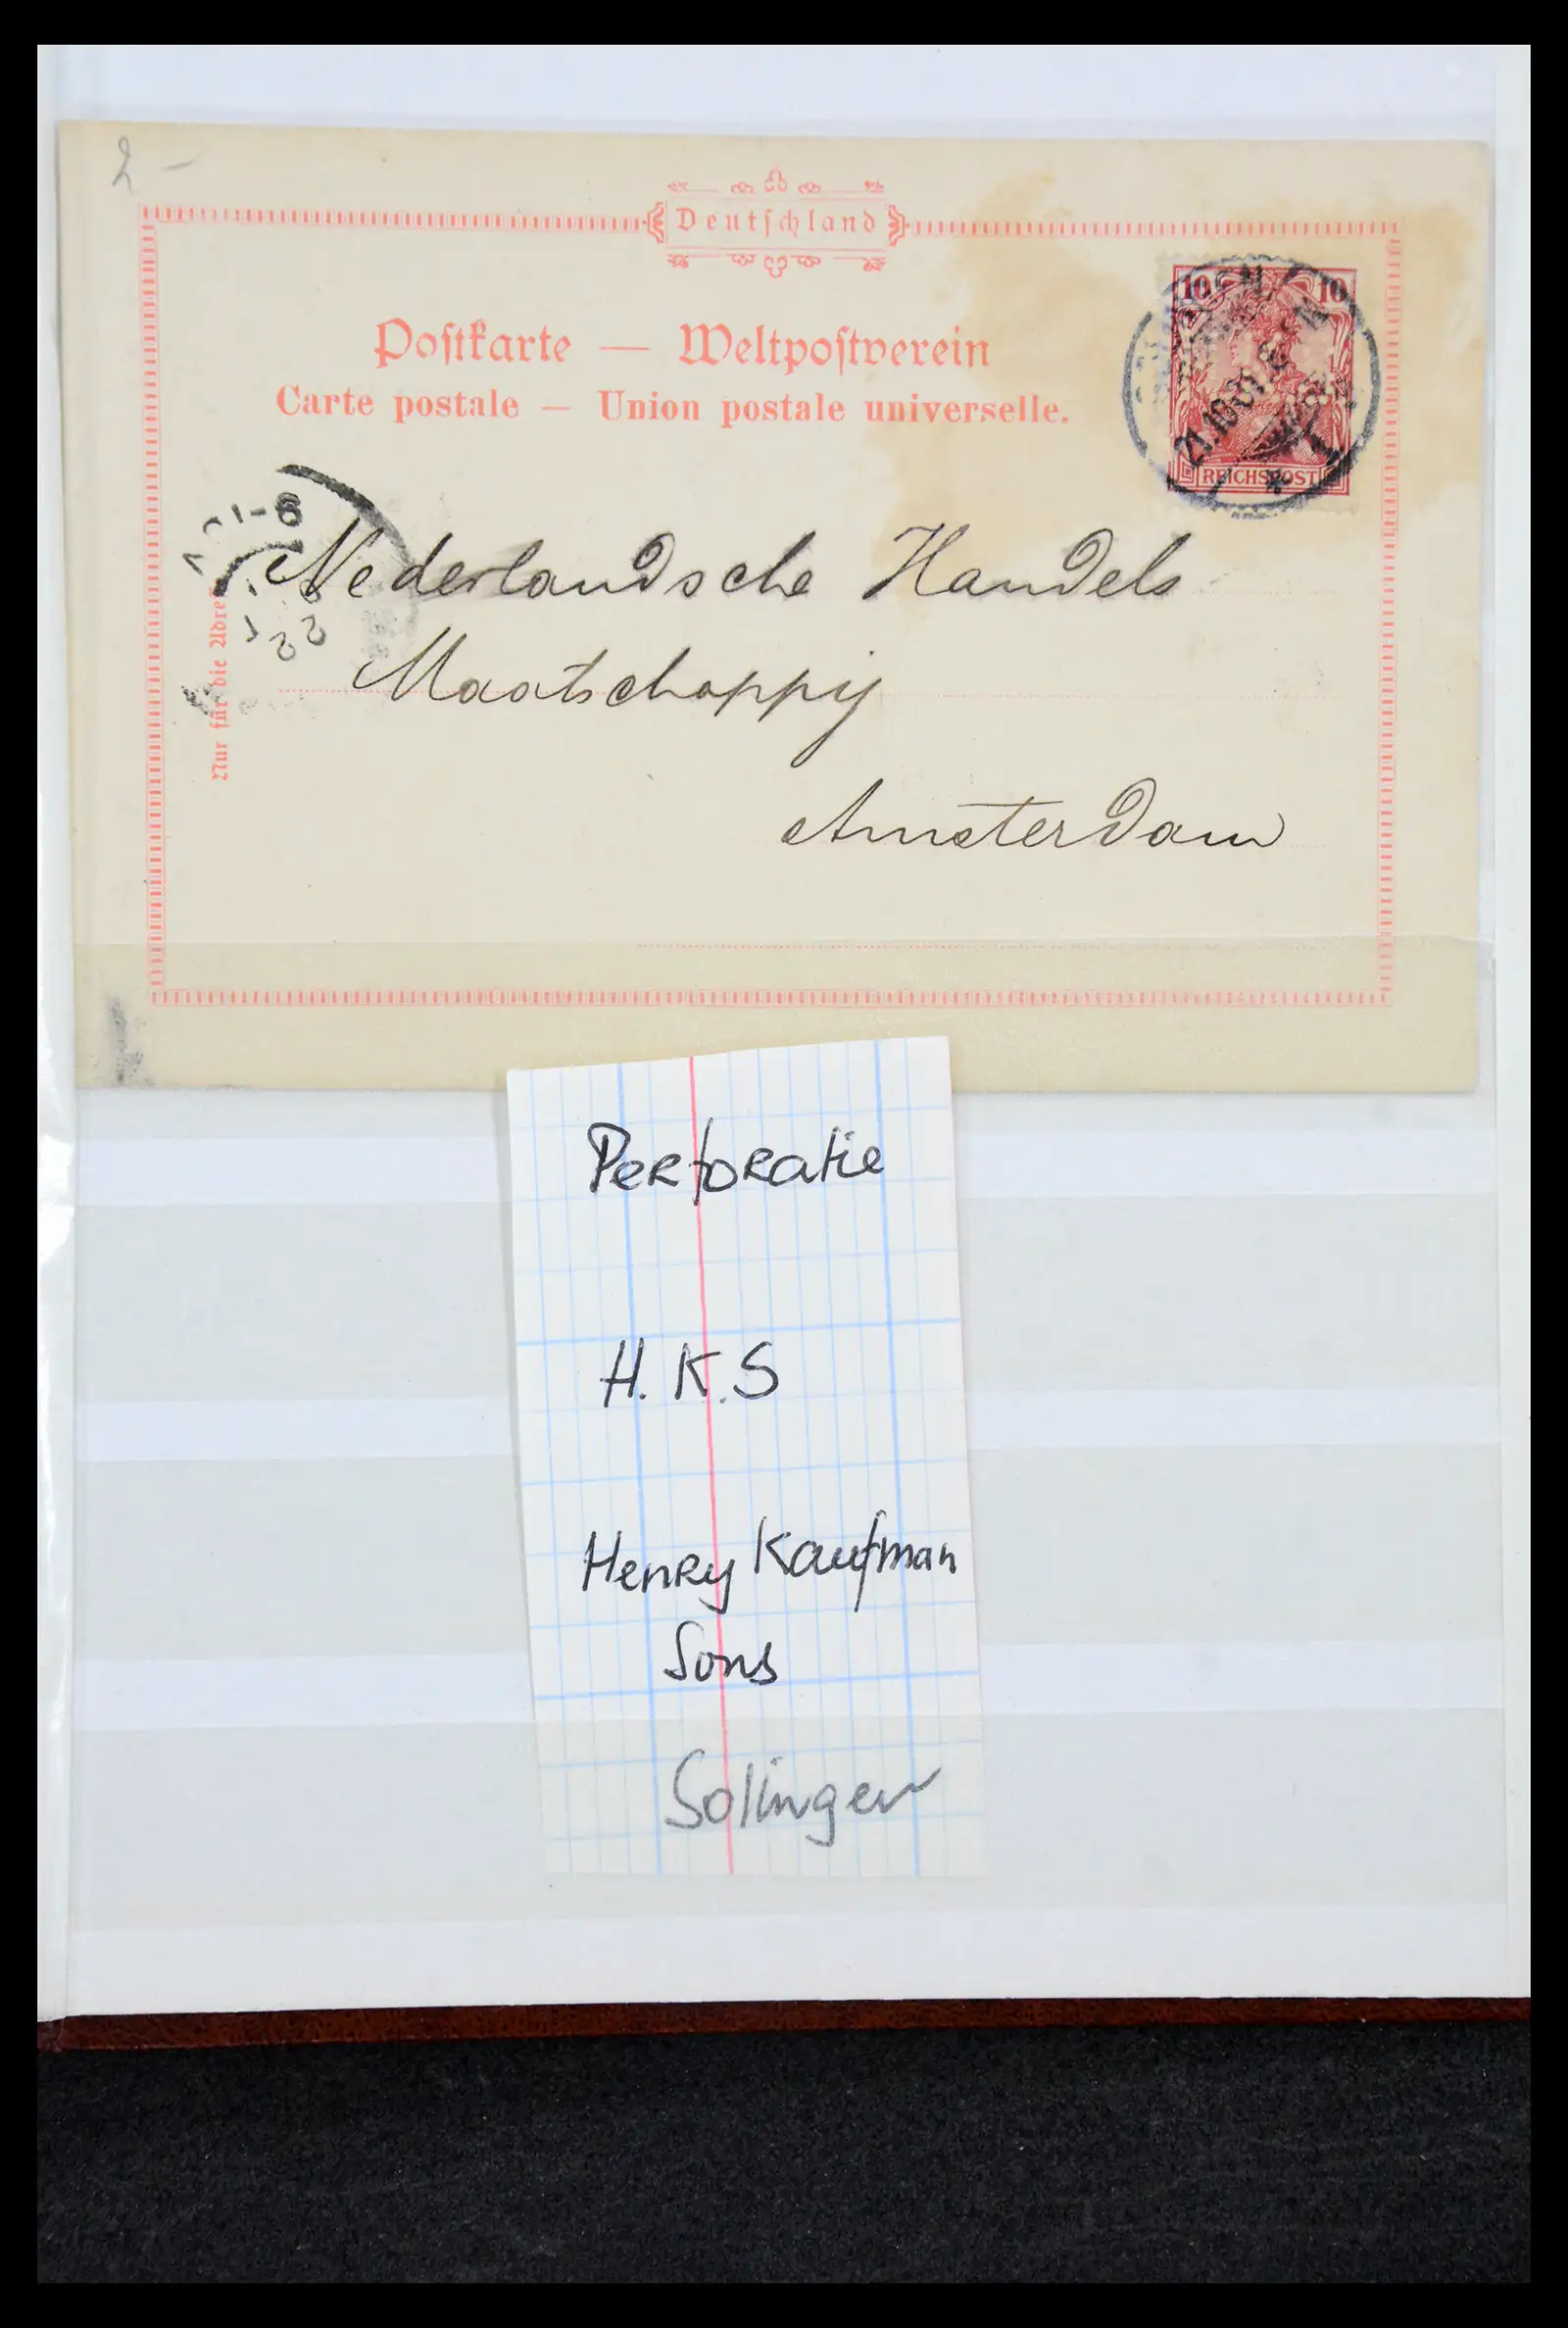 2 -
Deutschland
Postkarte — Weltpostverein
Carte postale — Union postale universelle.
10 10
21.10.01.
REICHSPOST
Nederlandsche Handels
Maatschappij
Amsterdam
Nur für die Adresse
Perforatie
H.K.S
Henry Kaufman
Sons
Solingen